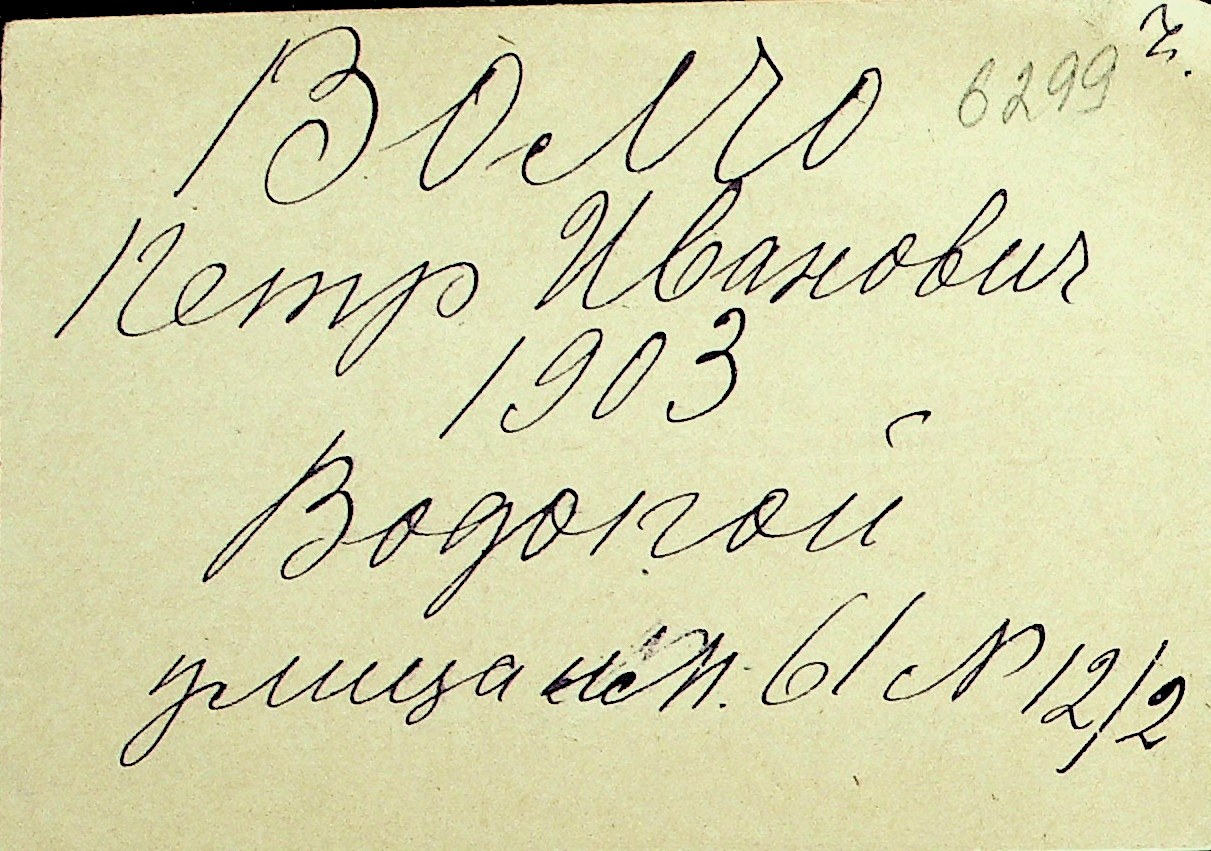 6299 ч.
Волчо
Петр Иванович
1903
Водопой
улица 61 № 12/2